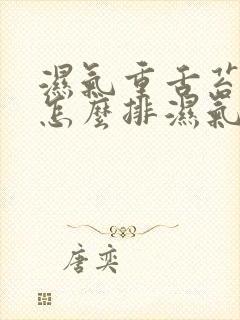 濕氣重舌苔
怎麼排濕氣
唐奕